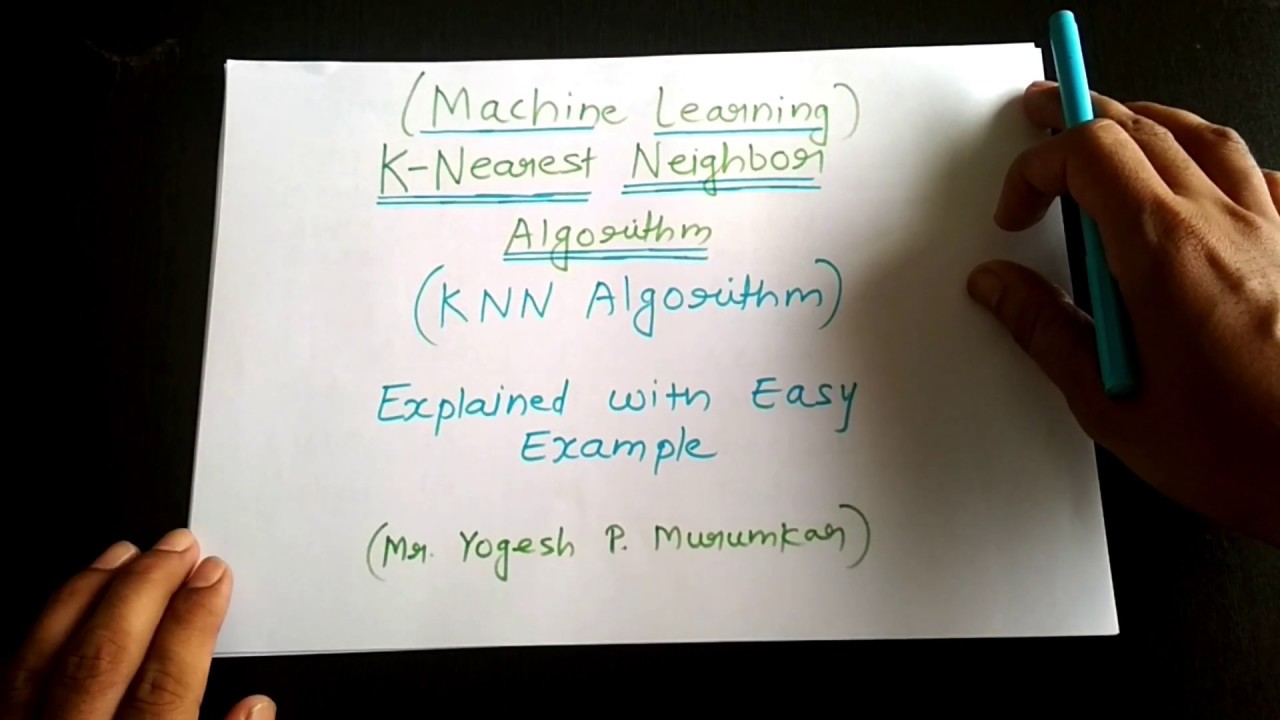 (Machine Learning)
K-Nearest Neighbor
Algorithm
(KNN Algorithm)
Explained with Easy
Example
(Mr. Yogesh P. Murumkar)